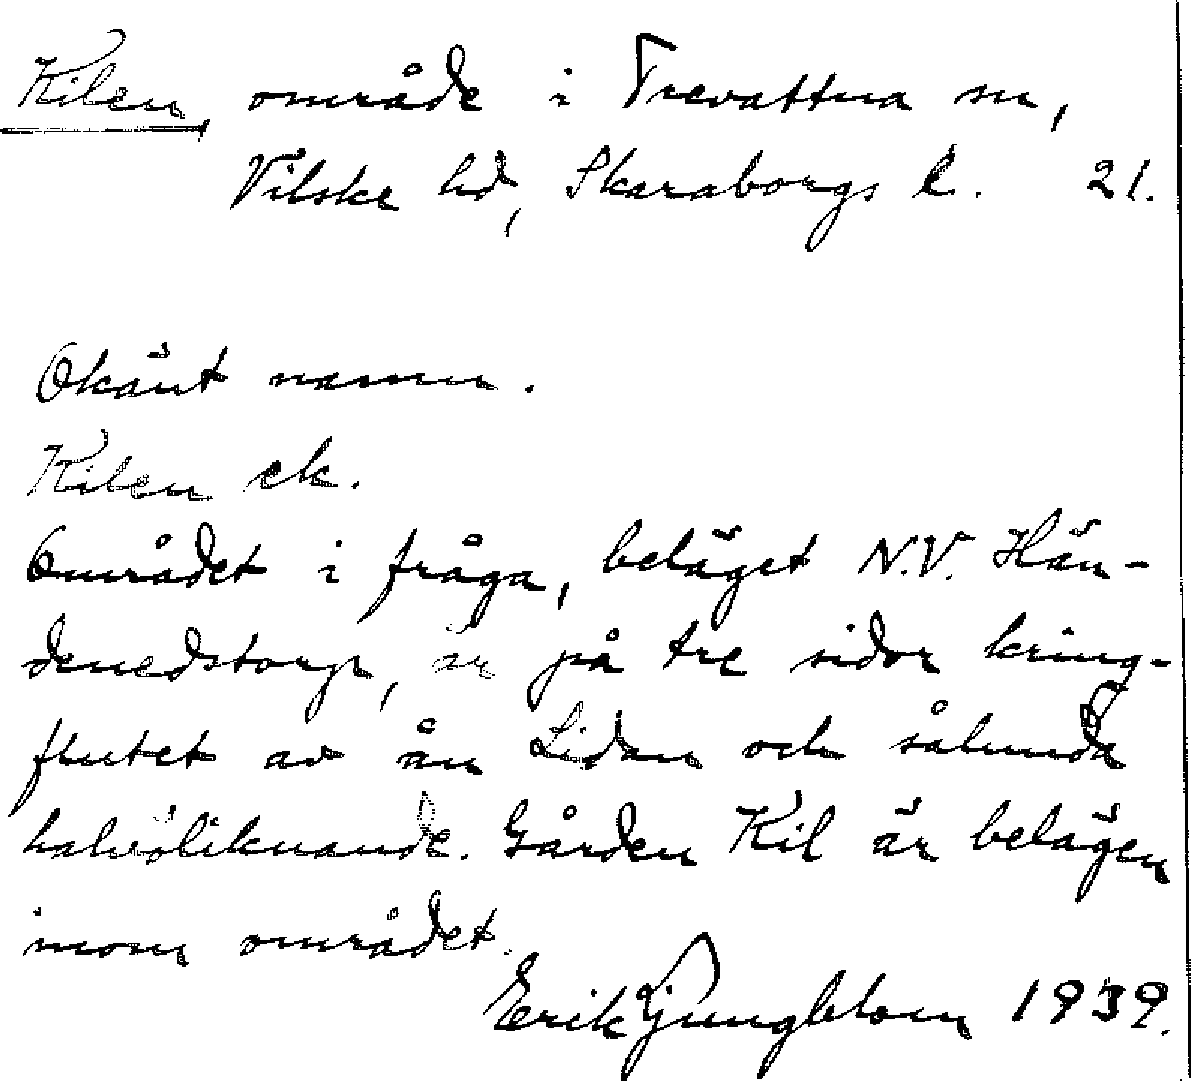 Kilen, område i Trevattna sn,
Vilske hd, Skaraborgs l. 21.
Okänt namn.
Kilen ek.
Området i fråga, beläget N.V. Hän-
denedstorp, är på tre sidor kring-
flutet av ån Lidan och sålunda
halvöliknande. Gården Kil är belägen
inom området.
Erik Ljungblom 1939.